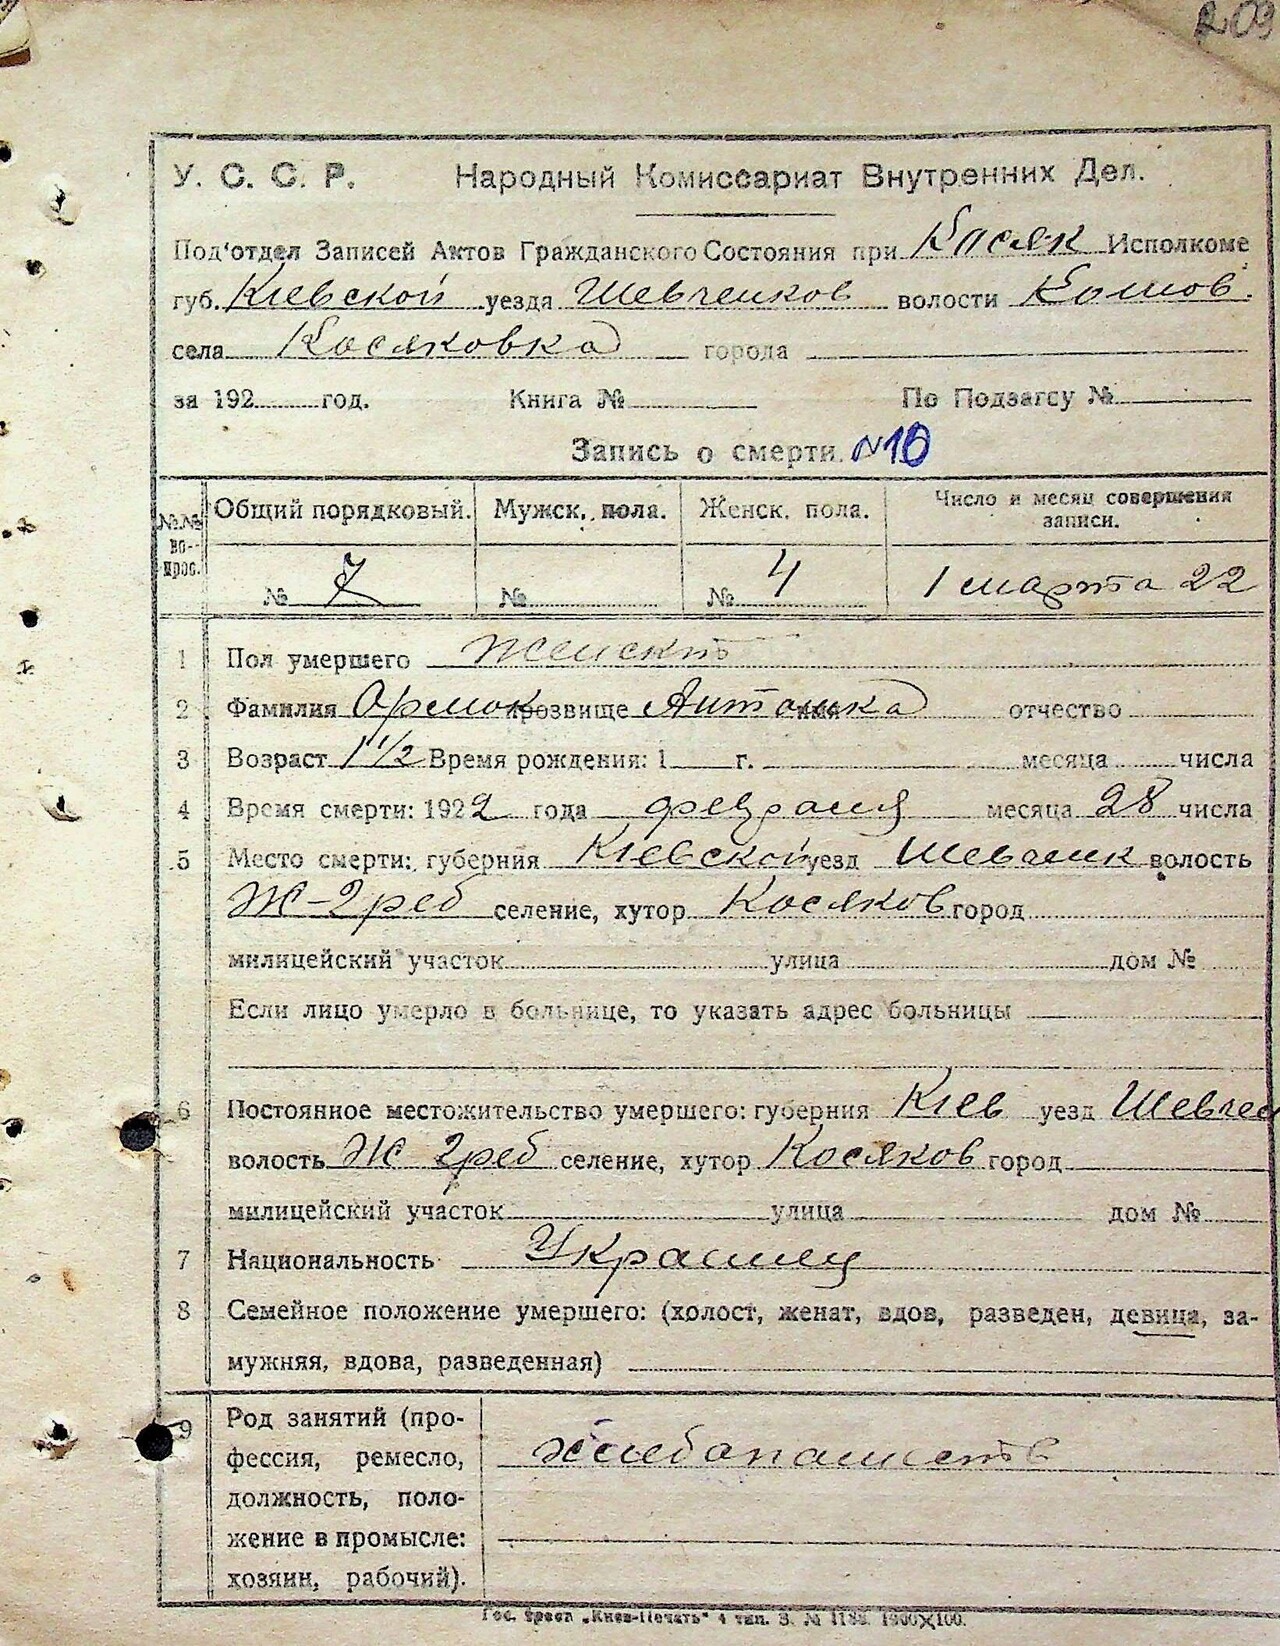 209
У. С. С. Р. Народный Комиссариат Внутренних Дел.
Под'отдел Записей Актов Гражданского Состояния при Косяк Исполкоме
губ. Кіевской уезда Шевченков волости
села Косяковка города
за 192 год. Книга № По Подзагсу №
Запись о смерти. №10
№№ во-прос. Общий порядковый. Мужск. пола. Женск. пола. Число и месяц совершения записи.
№ 7 № № 4 1 марта 22
1 Пол умершего Женскій
2 Фамилия прозвище отчество
3 Возраст 1 1/2 Время рождения: 1 г. месяца числа
4 Время смерти: 1922 года февраля месяца 28 числа
5 Место смерти: губерния Кіевской уезд Шевченк волость
Ж-2реб селение, хутор Косяков город
милицейский участок улица дом №
Если лицо умерло в больнице, то указать адрес больницы
6 Постоянное местожительство умершего: губерния Кіев уезд Шевчен
волость Ж 2реб селение, хутор Косяков город
милицейский участок улица дом №
7 Национальность Украинец
8 Семейное положение умершего: (холост, женат, вдов, разведен, девица, за-
мужняя, вдова, разведенная)
9 Род занятий (про-
фессия, ремесло, хлебопашеств
должность, поло-
жение в промысле:
хозяин, рабочий).
Гос. трест „Киев-Печать“ 4 тип. З. № 1100×100.